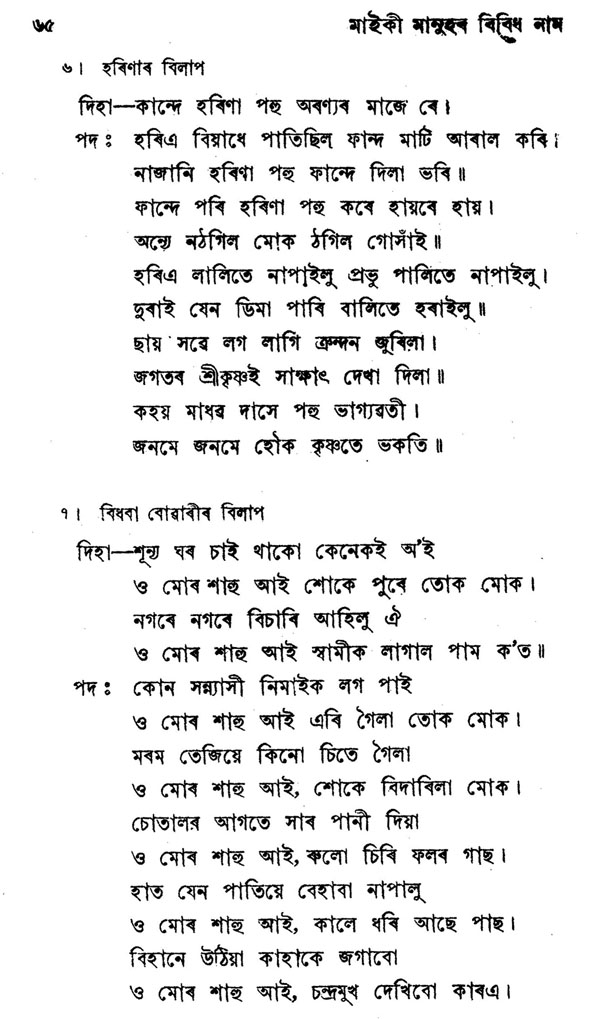 ৬৫ মাইকী মানুহৰ বিবিধ নাম
৬। হৰিণাৰ বিলাপ
দিহা—কান্দে হৰিণা পহু অৰণ্যৰ মাজে ৰে।
পদ : হৰিএ বিয়াধে পাতিছিল ফান্দ মাটি আৰাল কৰি।
নাজানি হৰিণা পহু ফান্দে দিলা ভৰি॥
ফান্দে পৰি হৰিণা পহু কৰে হায়ৰে হায়।
অন্যে নঠগিল মোক ঠগিল গোসাঁই॥
হৰিএ লালিতে নাপাইলু প্ৰভু পালিতে নাপাইলু।
দুৰাই যেন ডিমা পাৰি বালিতে হৰাইলু॥
ছায় সৱে লগ লাগি ক্ৰন্দন জুৰিলা।
জগতৰ শ্ৰীকৃষ্ণই সাক্ষাৎ দেখা দিলা॥
কহয় মাধৱ দাসে পহু ভাগ্যৱতী।
জনমে জনমে হৌক কৃষ্ণতে ভকতি॥
৭। বিধবা বোৱাৰীৰ বিলাপ
দিহা—শূন্য ঘৰ চাই থাকো কেনেকই অ'ই
ও মোৰ শাহু আই শোকে পুৰে তোক মোক।
নগৰে নগৰে বিচাৰি আহিলু ঐ
ও মোৰ শাহু আই স্বামীক লাগাল পাম ক'ত॥
পদ : কোন সন্ন্যাসী নিমাইক লগ পাই
ও মোৰ শাহু আই এৰি গৈলা তোক মোক।
মৰম তেজিয়ে কিনো চিতে গৈলা
ও মোৰ শাহু আই, শোকে বিদাৰিলা মোক।
চোতালৰ আগতে সাৰ পানী দিয়া
ও মোৰ শাহু আই, কলো চিৰি ফলৰ গাছ।
হাত যেন পাতিয়ে বেহাবা নাপালু
ও মোৰ শাহু আই, কালে ধৰি আছে পাছ।
বিহানে উঠিয়া কাহাকে জগাবো
ও মোৰ শাহু আই, চন্দ্ৰমুখ দেখিবো কাৰএ।